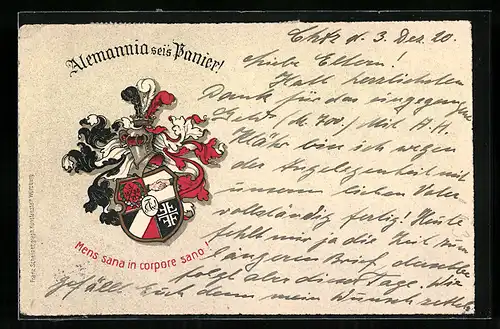 Alemannia seis Panier!
Mens sana in corpore sano!
d. 3. Dez. 20.
Liebe Eltern!
Habt herzlichsten
Dank für das eingegangene
Geld (M. 700.) Mit H. H.
bin ich wegen
der Angelegenheit mit
unserem lieben Vater
vollständig fertig! Heute
fehlt mir ja die Zeit zum
längeren Brief, derselbe
folgt aber dieser Tage. Wie
gefällt Euch denn mein Wunsch